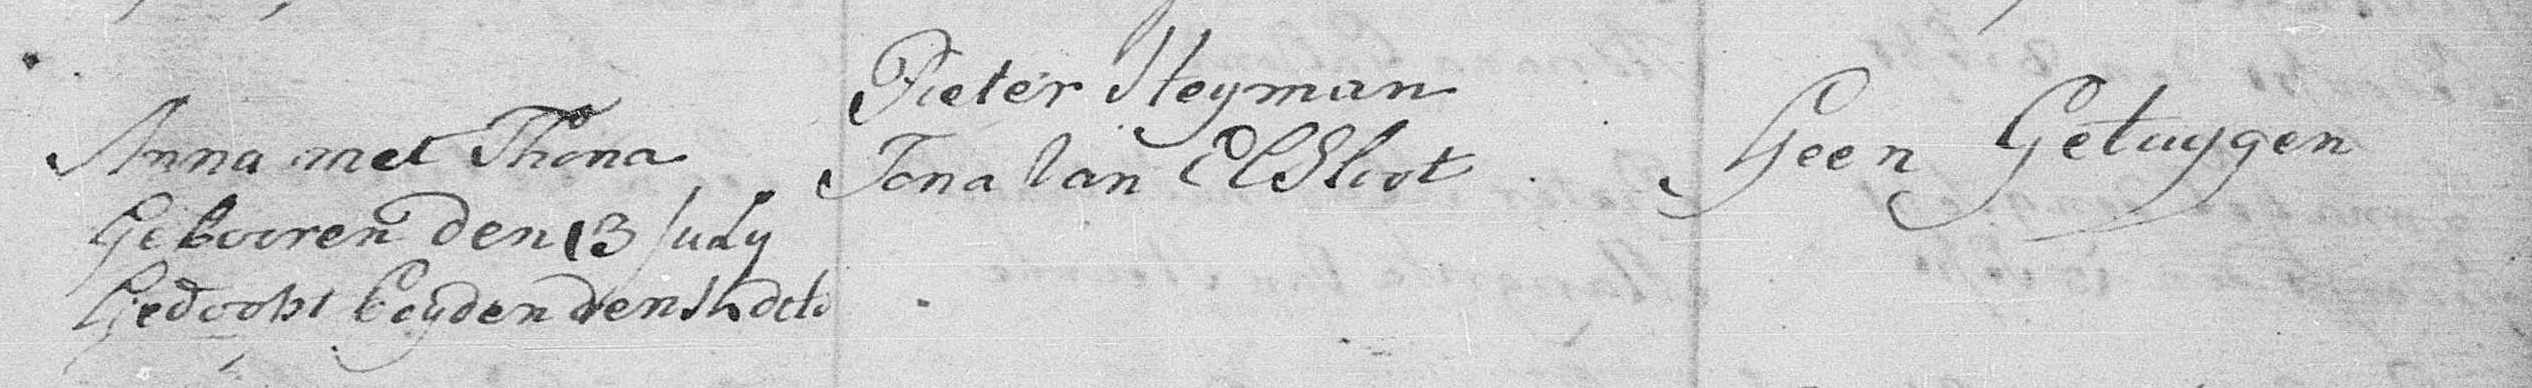 Anna met Thona
Gebooren den 13 July
Gedoopt beyden den 14 dito
Pieter Heyman
Tona Van Elsloot
Geen Getuygen